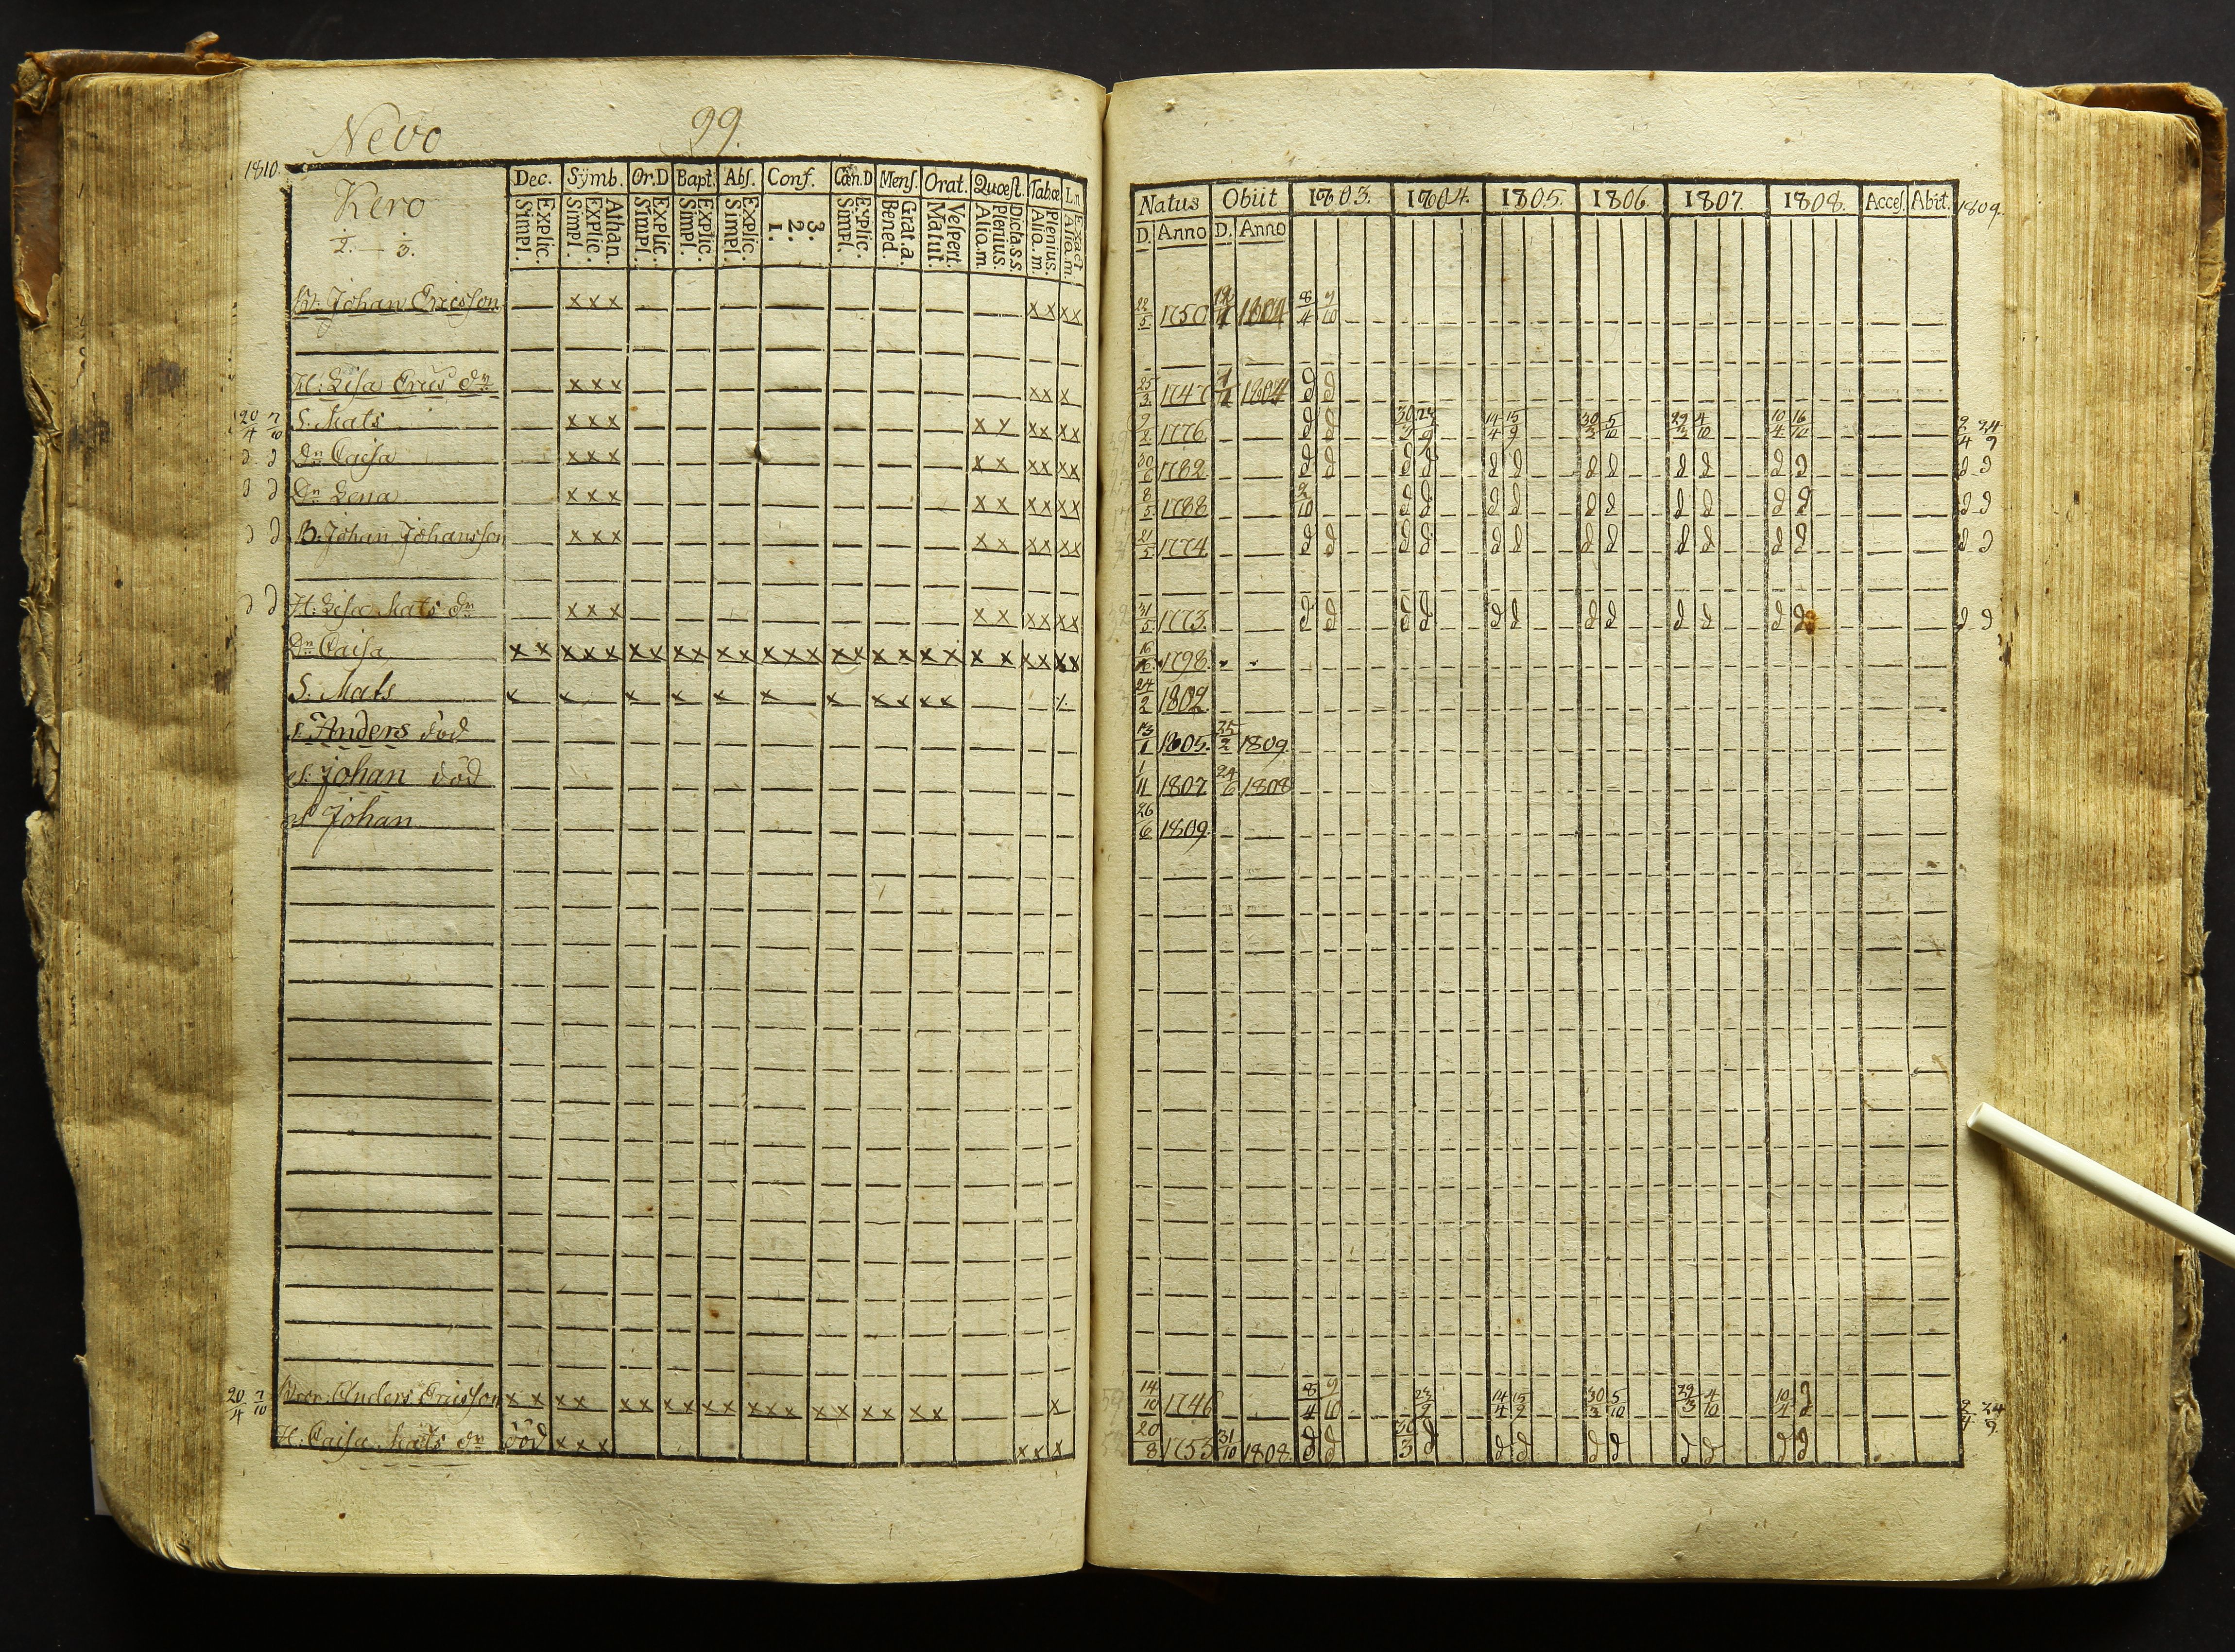 Nevo 99.
1810.
Kero
2. — 3.
Dec. Sÿmb. Or.D Bapt. Abſ. Conf. Cœn.D Menſ. Orat. Quœſt. Tabœ L.n
Explic. Simpl. Athan. Explic. Simpl. Explic. Simpl. Explic. Simpl. Explic. Simpl. 3. 2. 1. Explic. Simpl. Grat.a. Bened. Veſpert. Matut. Dicta.s.s. Plenius. Alio.m. Plenius. Alio.m. Exact Alio.m.
Johan Ericsson x x x x x x x
H: Lisa Erics dr x x x x x x
20/4 7/10 S. Mats x x x x x x x x x
d d Dr Caisa x x x x x x x x x
d d Dr Lena x x x x x x x x x
d d B. Johan Johansson x x x x x x x x x
d d H: Lisa Mats dr x x x x x x x x x
Dr Caisa x x x x x x x x x x x x x x x x x x x x x x x x x x
S. Mats x x x x x x x x x x x x
s. Anders död
s. Johan död
s Johan
20/4 7/10 Anders Ericsson x x x x x x x x x x x x x x x x x x x x
H. Caisa Mats dr död x x x x x x
Natus Obiit 1803. 1804. 1805. 1806. 1807. 1808. Acceſ. Abit. 1809.
D. Anno D. Anno
22/5 1750 1804 8/4 9/10
25/3 1747 1804 d d
9/2 1776 d d 14/4 15/9 30/3 5/10 29/3 4/10 10/4 16/10 2/4 24/9
30/6 1782 d d d d d d d d d d d d d d
8/5 1788 2/10 d d d d d d d d d d d d
21/5 1774 d d d d d d d d d d d d d d
31/5 1773 d d d d d d d d d d d d d d
1798.
24/2 1802
13/1 1805. 25/2 1809.
1/11 1807 24/6 1808
26/6 1809.
14/10 1746 8/4 9/10 23/9 14/4 15/9 30/3 5/10 29/3 4/10 10/4 d 2/4 24/9
20/8 1753 31/10 1808. d d 30/3 d d d d d d d d d